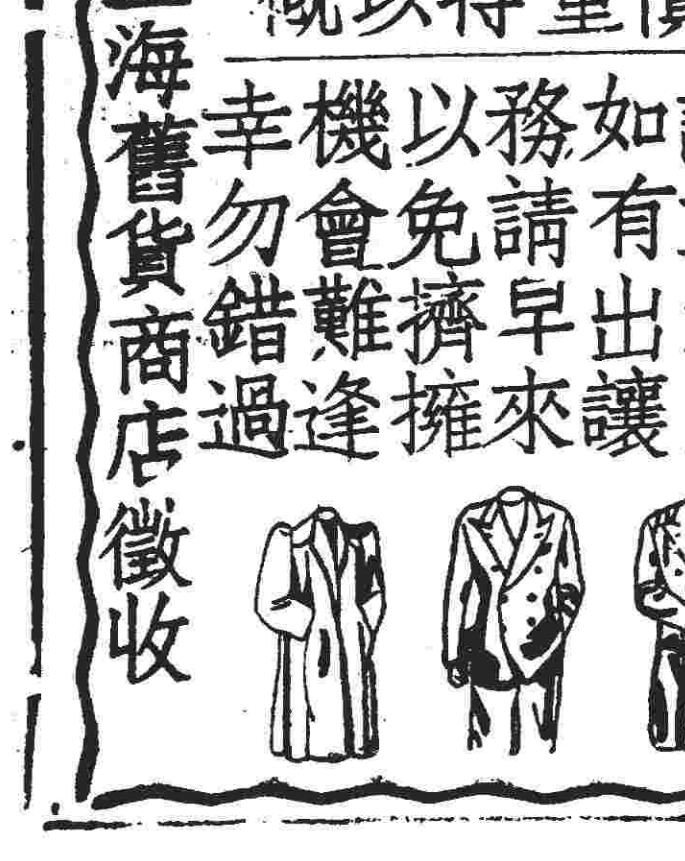 如有出讓
務請早來
以免擠擁
機會難逢
幸勿錯過
海舊貨商店徵收